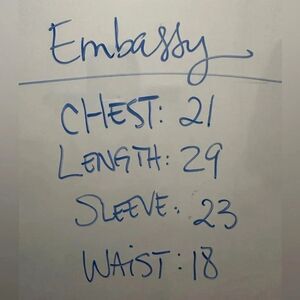 Embassy
CHEST: 21
LENGTH: 29
SLEEVE: 23
WAIST: 18